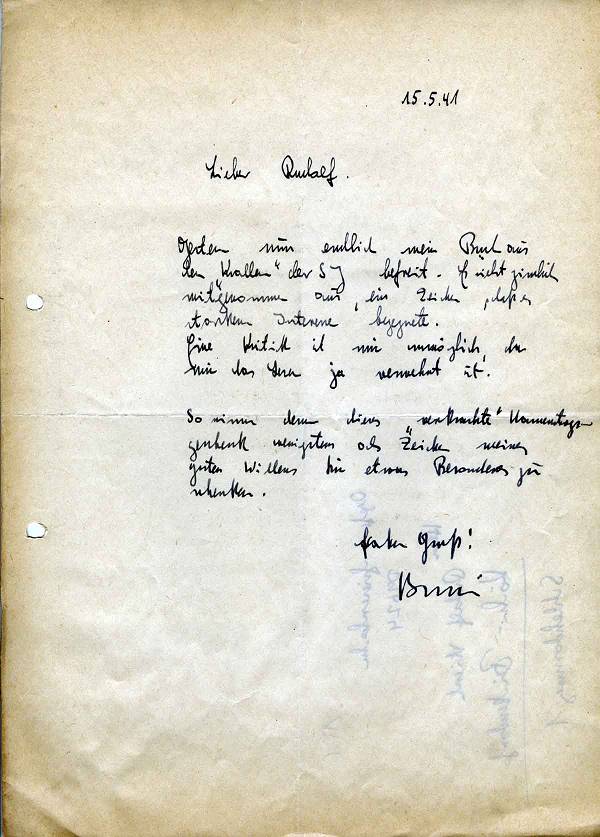 15.5.41
Lieber Rudolf.
Gestern nun endlich mein Buch aus
den "Krallen" der SJ befreit. Es sieht ziemlich
mitgenommen aus, ein Zeichen, daß es
starkem Interesse begegnete.
Eine Kritik ist mir unmöglich, da
mir das Lesen ja verwehrt ist.
So nimm denn dieses "verkrachte" Namenstags-
geschenk wenigstens als Zeichen meines
guten Willens Dir etwas Besonderes zu
schenken.
Gruß!